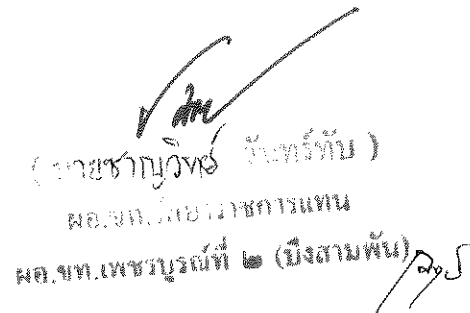 (นายชาญวิทย์ จันทร์ทับ)
ผอ.ขท. รักษาราชการแทน
ผอ.ขท.เพชรบูรณ์ที่ ๒ (บึงสามพัน)